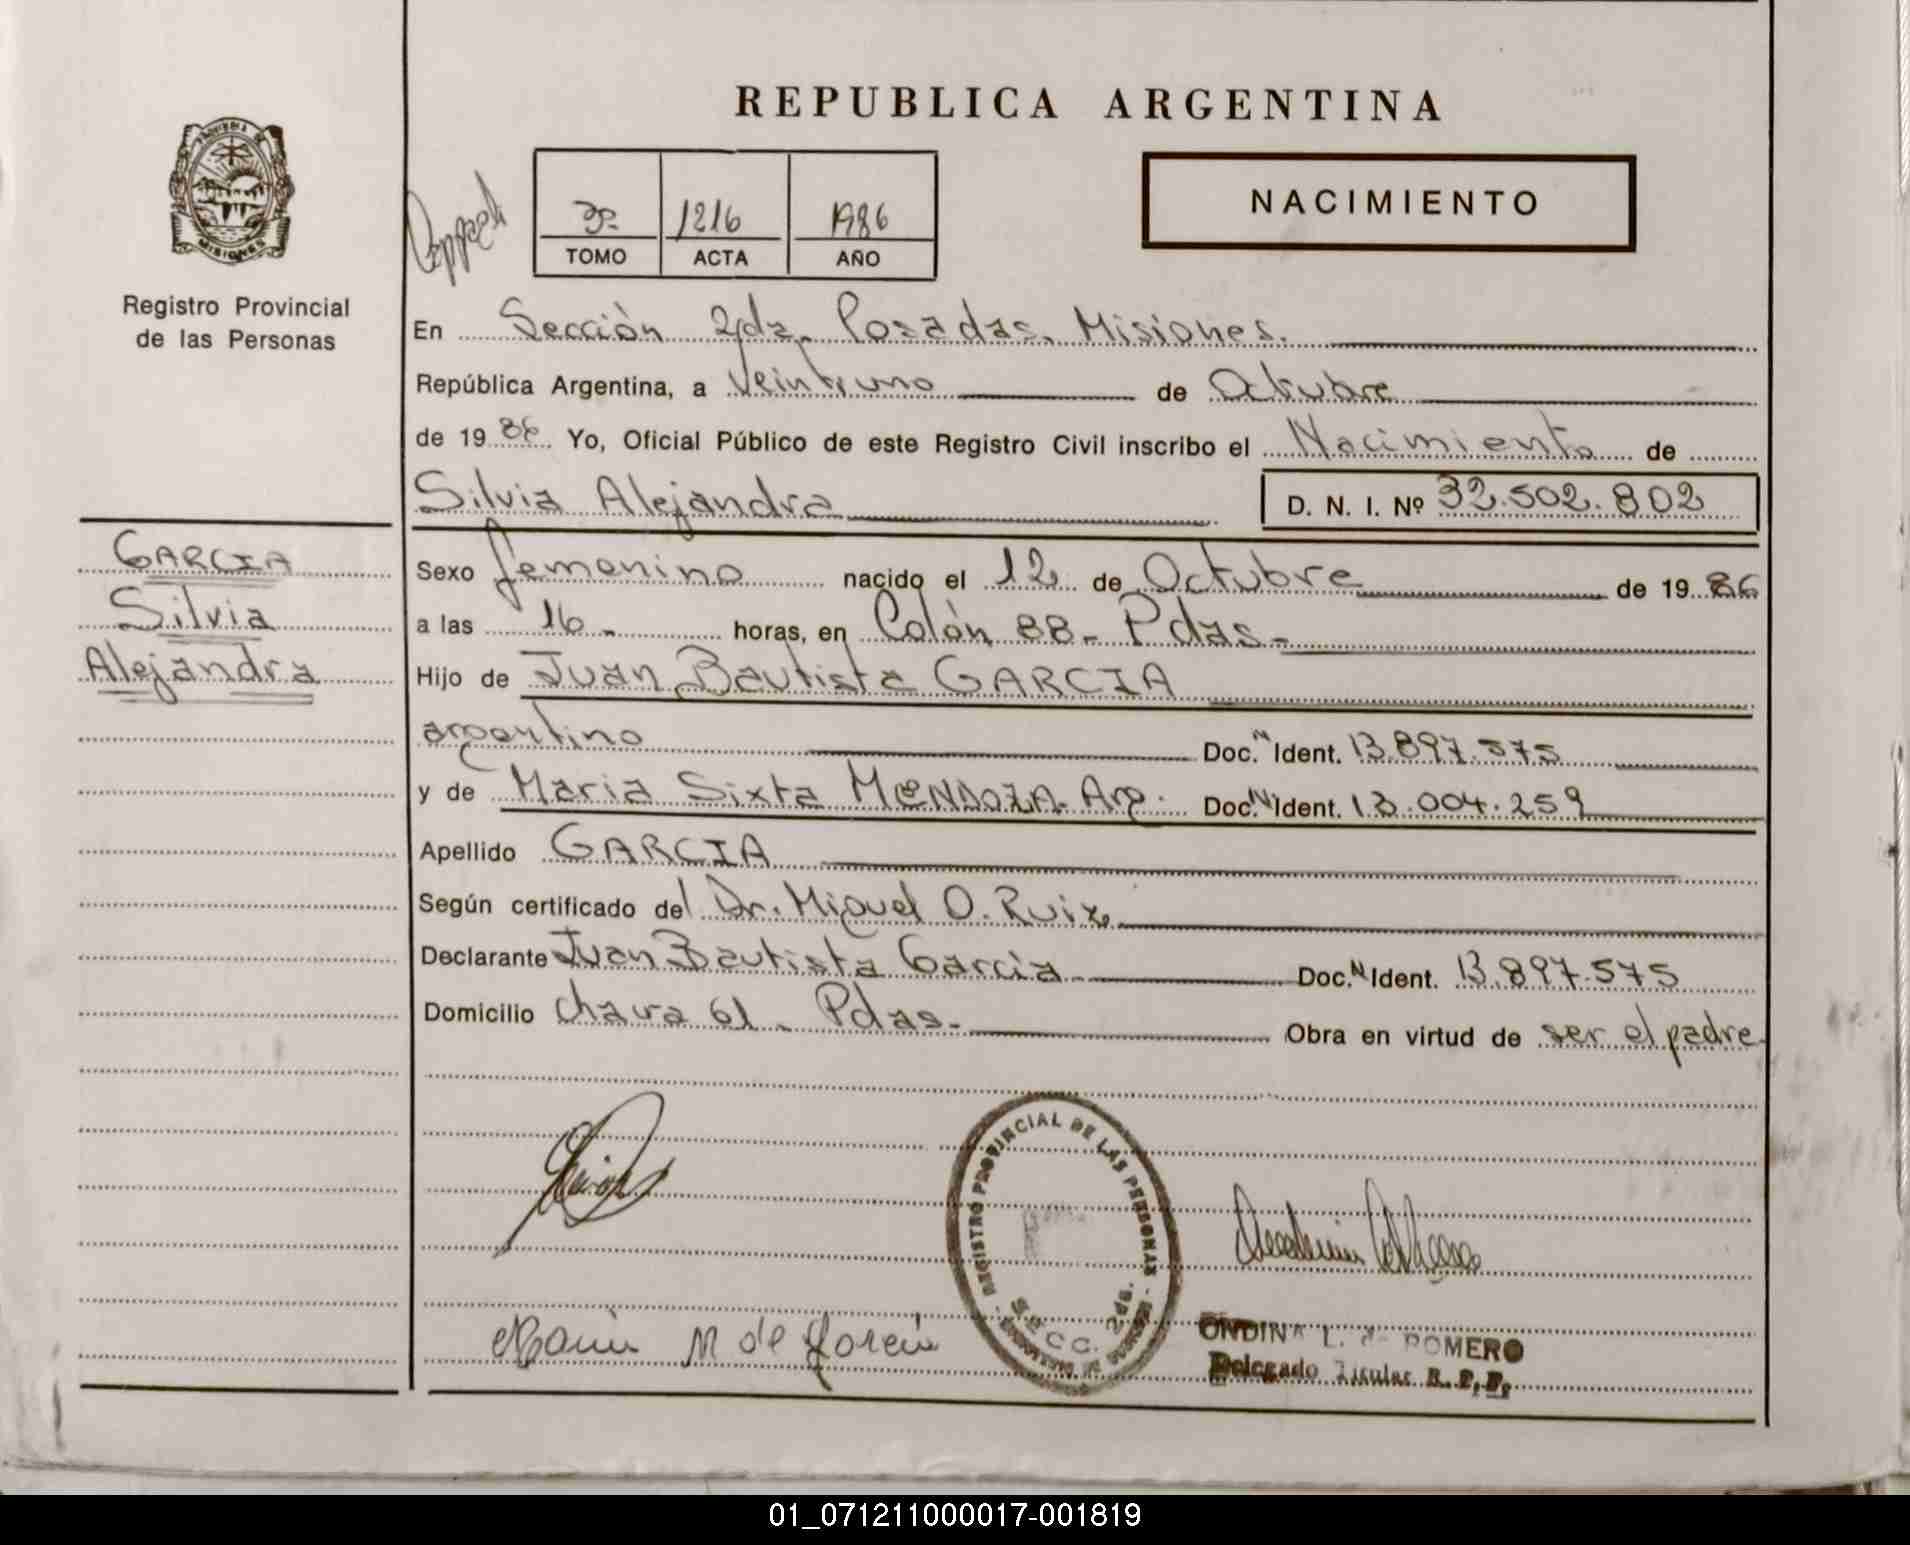 REPUBLICA ARGENTINA
PROVINCIA DE
MISIONES
Registro Provincial
de las Personas
3º 1216 1986
TOMO ACTA AÑO
NACIMIENTO
En Sección 2da. Posadas, Misiones.
República Argentina, a Veintiuno de Octubre
de 1986 Yo, Oficial Público de este Registro Civil inscribo el Nacimiento de
Silvia Alejandra D. N. I. Nº 32.502.802
GARCIA
Silvia
Alejandra
Sexo femenino nacido el 12 de Octubre de 1986
a las 16 - horas, en Colón 88 - Pdas -
Hijo de Juan Bautista GARCIA
argentino Doc. N Ident. 13.897.575
y de Maria Sixta MENDOZA - Arg. Doc. N Ident. 13.004.259
Apellido GARCIA
Según certificado del Dr. Miguel O. Ruiz
Declarante Juan Bautista Garcia Doc. N Ident. 13.897.575
Domicilio chacra 61 - Pdas - Obra en virtud de ser el padre
REGISTRO PROVINCIAL DE LAS PERSONAS
SECC. 2da.
Maria M de Garcia
ONDINA L. de ROMERO
Delegado Titular R. P. P.
01_071211000017-001819